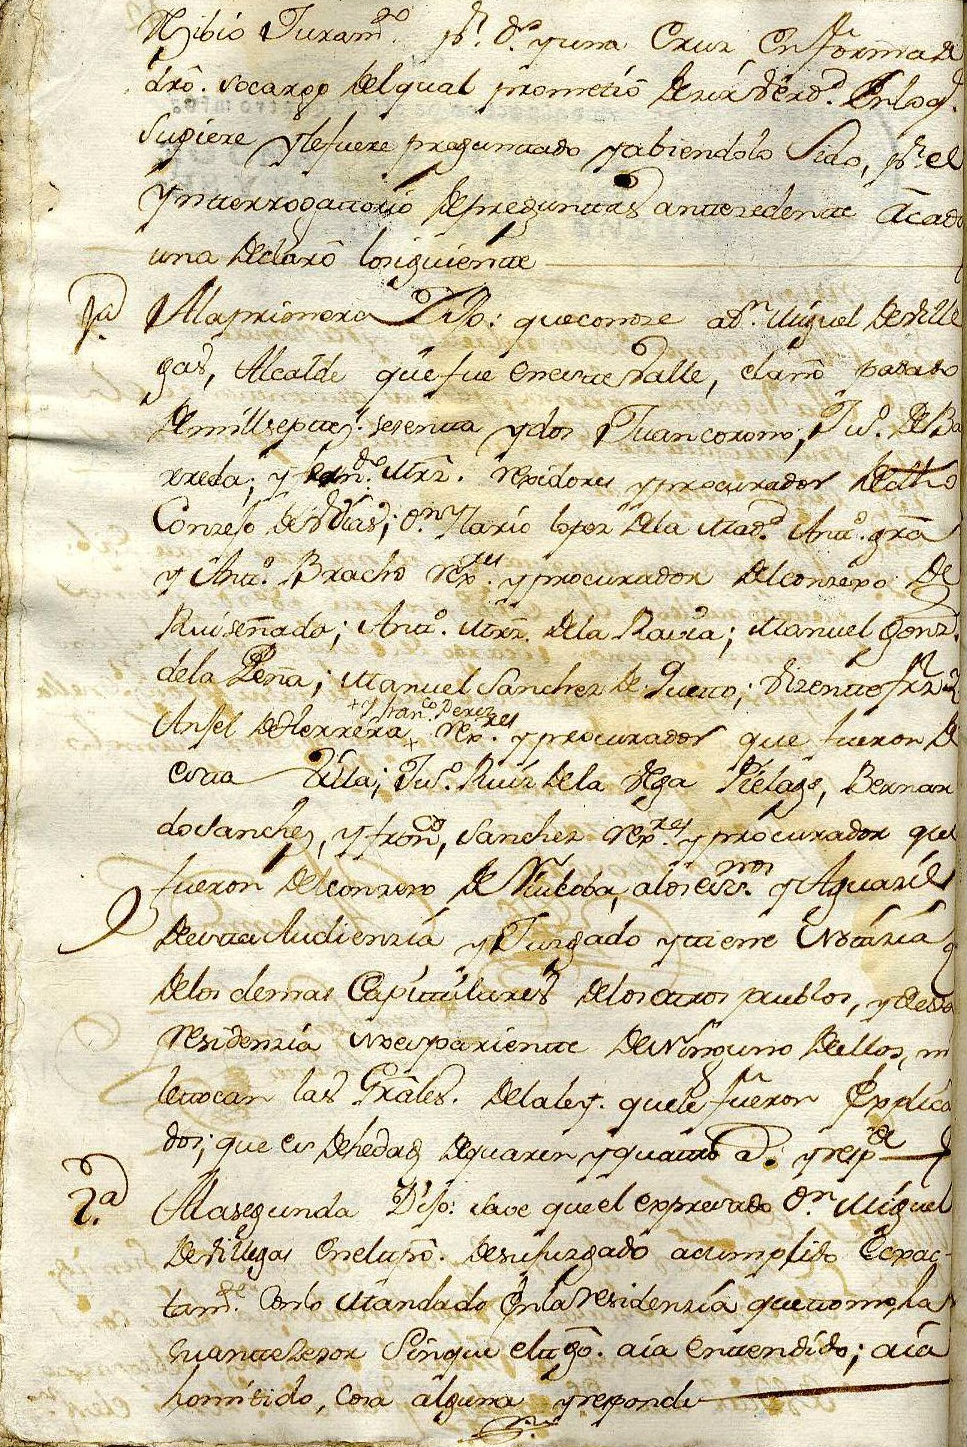 Rzibió Juramto. pr. Ds. y una Cruz en forma de
dro. socargo del qual prometió dezir verdd. en loq.
Supiere y lefuere preguntado y abiendolo Sido, pr. el
ynterrogatorio de preguntas antezedente a cada
una declaró losiguiente
1a. A la primera Dijo: que conoze a Dn. Miguel de Ville
gas, Alcalde que fue en este Valle, el año pasado
de mill septes. sesenta y dos Juan corono; Jo. de Ba
rreda; y Mrz. rexidores y procurador de dho
Conzejo de Vdias; Dn. Ylario lopez de la Mad. Anto. gra
y Anto. Bracho rexres. y procurador del conzexo de
Ruiseñada; Anto. Mrz. de la Ravia; Manuel Gonz.
de la Peña; Manuel Sanchez de Cueto; Vizente frz
+ y franco. Perez
Anjel de Herrera + rexres. y procurador que fueron de
esta Villa; Jo. Ruiz de la Vega Pielago, Bernar
do Sanchez, y franco. Sanchez rexres. y procurador que
fueron del conzexo de Noboba, a los essnos. y Aguazil
de esta Audienzia y Juzgado y tiene Notizia
de los demas Capitulares de los otros pueblos, y desta
residenzia no es pariente de Ninguno dellos, ni
le tocan las Grales. de la ley. que le fueron Explica
dos; que es de hedad de quaren y quatro a. y respde
2a. A la segunda Dijo: save que el expresado Dn. Miguel
de Villegas en el tpo. de su juzgado a cumplido Exsac-
tamte. con lo Mandado en la residenzia que tomo la
su antezesor Sin que el tgo. aia entendido; aia
homitido, cosa alguna y responde